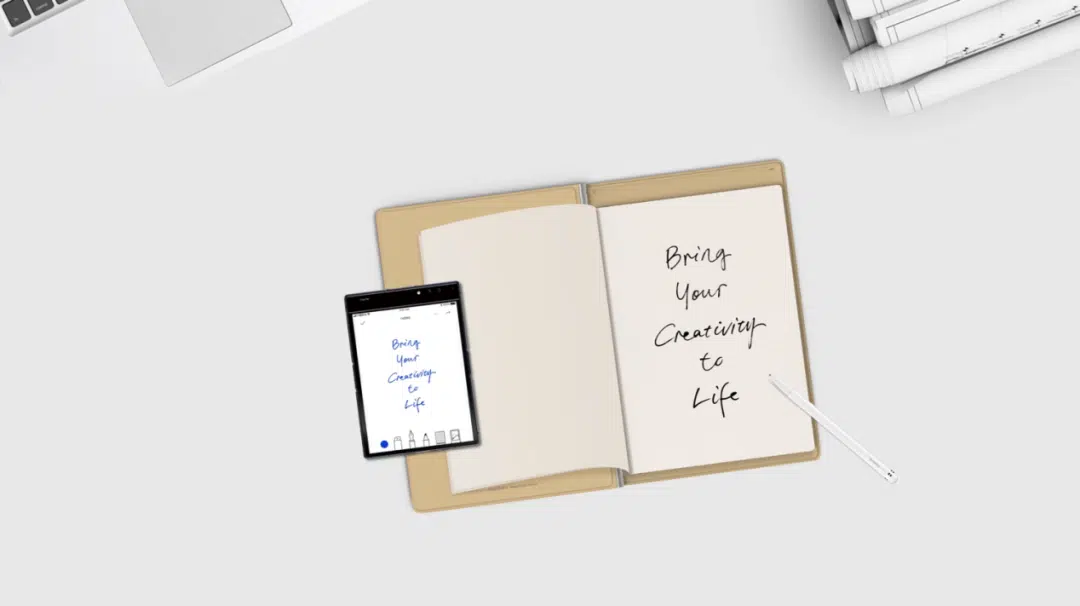 Bring
Your
Creativity
to
Life
Bring
Your
Creativity
to
Life